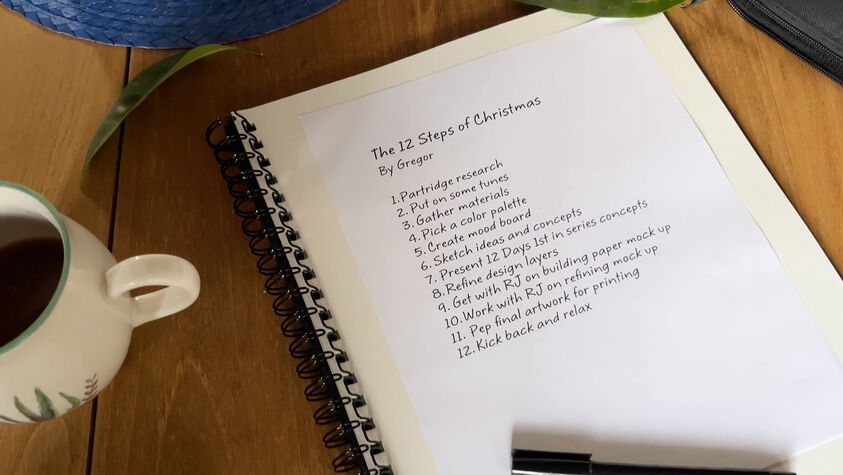 The 12 Steps of Christmas
By Gregor
1.Partridge research
2. Put on some tunes
3. Gather materials
4. Pick a color palette
5. Create mood board
6. Sketch ideas and concepts
7. Present 12 Days 1st in series concepts
8.Refine design layers
9. Get with RJ on building paper mock up
10.Work with RJ on refining mock up
11. Pep final artwork for printing
12.Kick back and relax